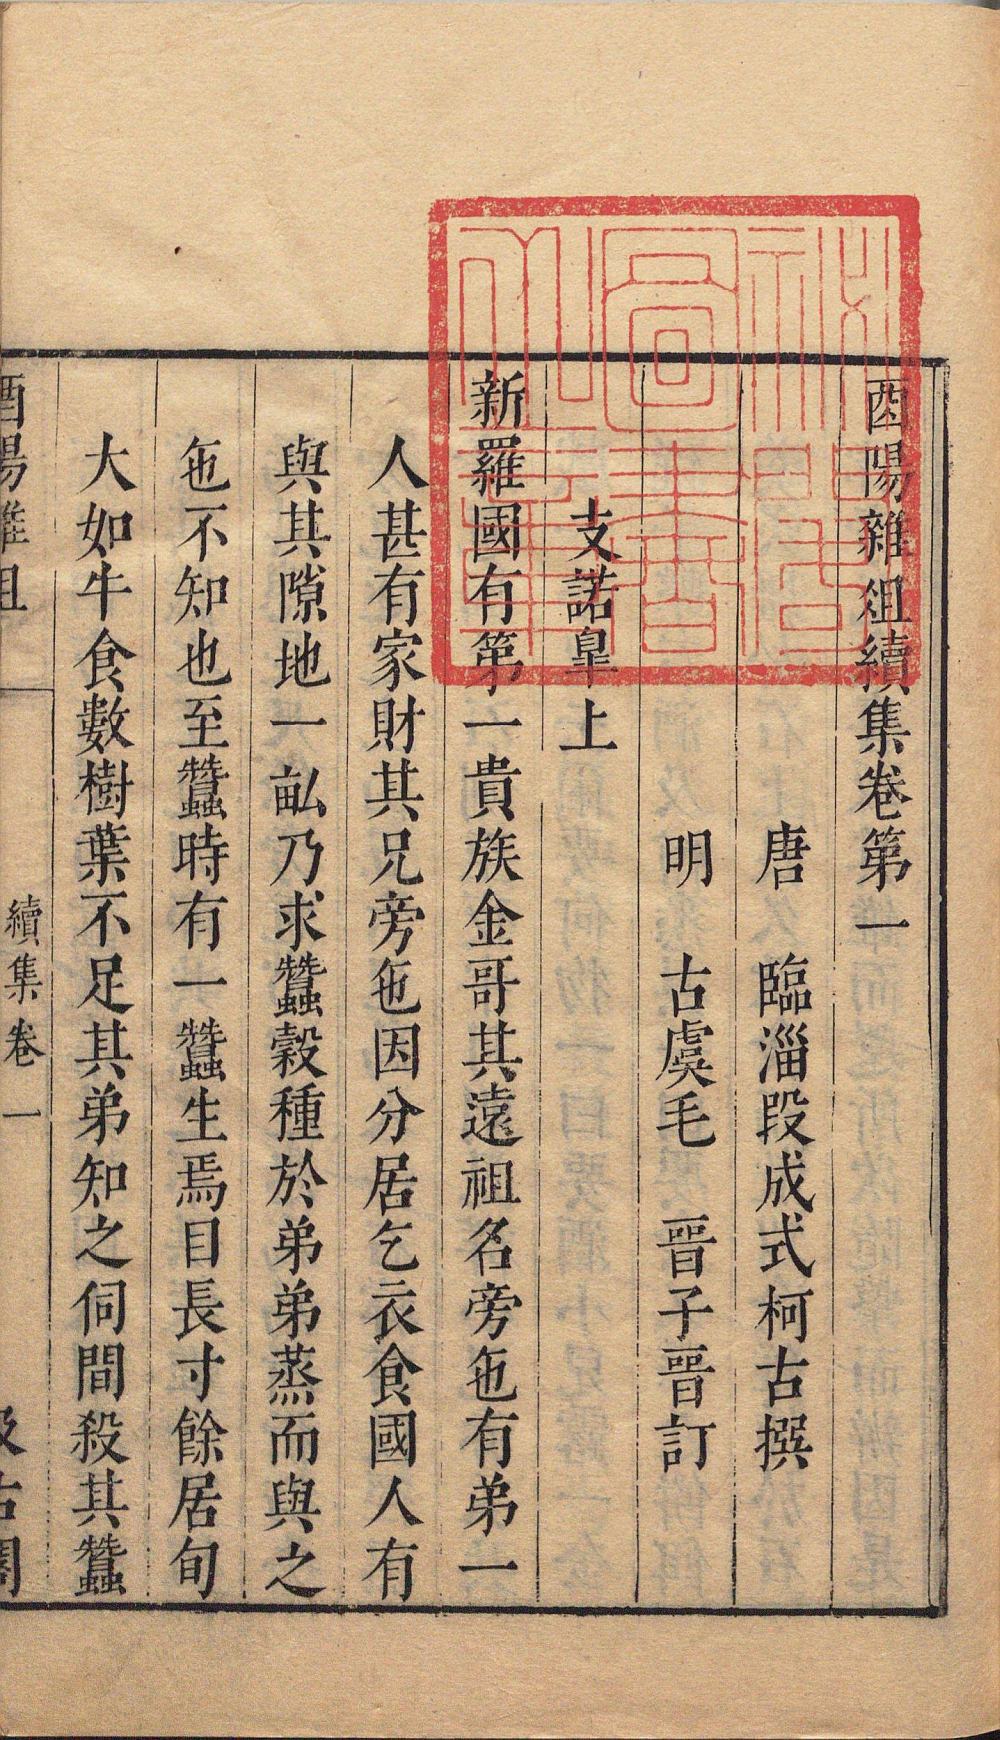 酉陽雜俎續集卷第一
唐　臨淄段成式柯古撰
明　古虞毛　晉子晉訂
支諾臯上
新羅國有第一貴族金哥其遠祖名旁㐌有弟一
人甚有家財其兄旁㐌因分居乞衣食國人有
與其隙地一畝乃求蠶穀種於弟弟蒸而與之
㐌不知也至蠶時有一蠶生焉目長寸餘居旬
大如牛食數樹葉不足其弟知之伺間殺其蠶
酉陽雜俎
續集卷一
汲古閣